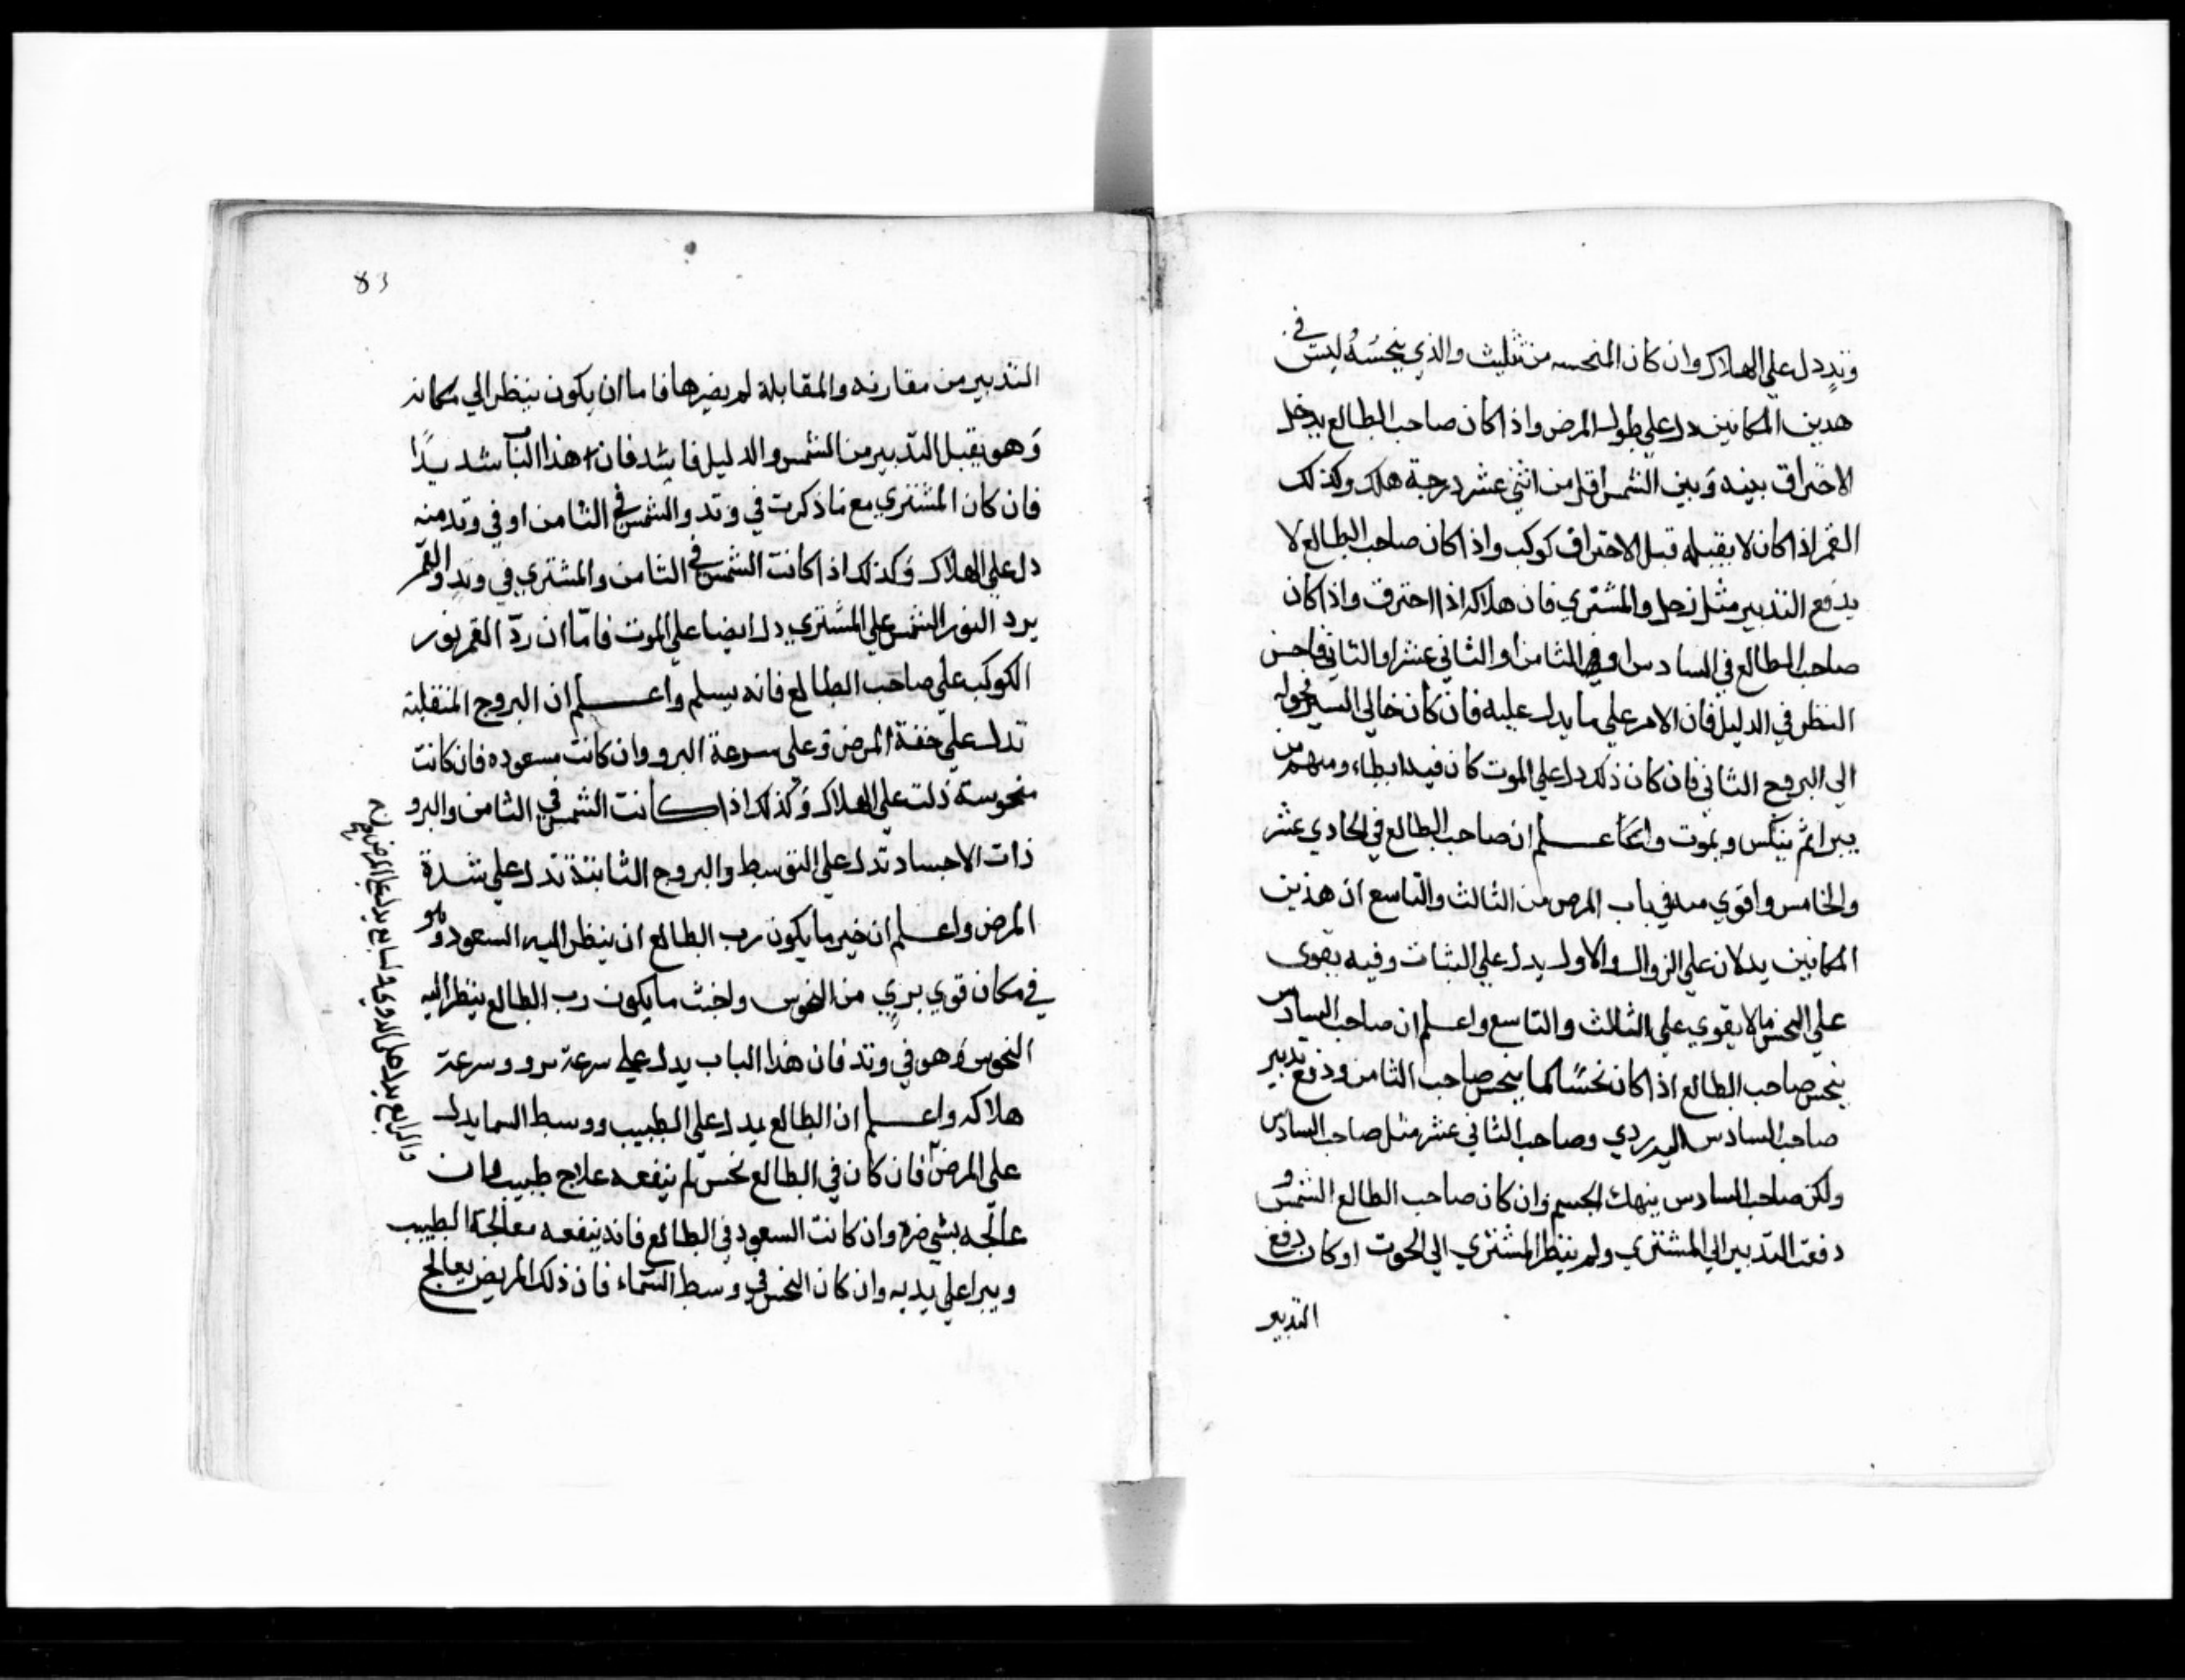 وتد دل علي الهلاك وان كان المنحسه من تثليث والذي ينحسه ليس في
هذين المكانين دل علي طول المرض واذا كان صاحب الطالع يدخل
الاحتراق بينه وبين الشمس اقل من اثني عشر درجة هلك وكذلك
القمر اذا كان لا يقبله قبل الاحتراق كوكب واذا كان صاحب الطالع لا
يدفع التدبير مثل زحل والمشتري فان هلاكه اذا احترق واذا كان
صاحب الطالع في السادس او في الثامن او الثاني عشر او الثاني فاحسن
النظر في الدليل فان الامر علي ما يدل عليه فان كان خالي السير نحوله
الي البروج الثاني فان كان ذلك دل علي الموت كان فيه ابطاء ومنهم من
يبرا ثم ينكس ويموت واعلم ان صاحب الطالع في الحادي عشر
والخامس واقوي منه في باب المرض من الثالث والتاسع ان هذين
المكانين يدلان علي الزوال والاول يدل علي الثبات وفيه يقوي
علي النحس ما لا يقوي علي الثالث والتاسع واعلم ان صاحب السادس
ينحس صاحب الطالع اذا كان نحسا كما ينحس صاحب الثامن ودفع تدبير
صاحب السادس اليه ردي وصاحب الثاني عشر مثل صاحب السادس
ولكن صاحب السادس ينهك الجسم وان كان صاحب الطالع الشمس و
دفعت التدبير الي المشتري ولم ينظر المشتري الي الحوت او كان دفع
التدبير
83
التدبير من مقارنه والمقابلة لم يضرها فاما ان يكون ينظر الي مكانه
وهو يقبل التدبير من الشمس والدليل فاشد فان هذا الباب شديدا
فان كان المشتري مع ما ذكرت في وتد والشمس في الثامن او في وتد منه
دل علي الهلاك وكذلك اذا كانت الشمس في الثامن والمشتري في وتد والقمر
يرد النور الشمس علي المشتري دل ايضا علي الموت فاما ان رد القمر نور
الكوكب علي صاحب الطالع فانه يسلم واعلم ان البروج المنقلبة
تدل علي خفة المرض وعلي سرعة البرو وان كانت مسعوده فان كانت
منحوسة دلت علي الهلاك وكذلك اذا كانت الشمس في الثامن والبرو
ذات الاجساد تدل علي التوسط والبروج الثابتة تدل علي شدة
المرض واعلم ان خير ما يكون رب الطالع ان ينظر اليه السعود وهو
في مكان قوي بري من النحوس واخبث ما يكون رب الطالع ينظر اليه
النحوس وهو في وتد فان هذا الباب يدل علي سرعة برو وسرعة
هلاكه واعلم ان الطالع يدل علي الطبيب ووسط السما يدل
علي المرض فان كان في الطالع نحس لم ينفعه علاج طبيب فان
عالجه بشي ضره وان كانت السعود في الطالع فانه ينفعه معالجة الطبيب
ويبرا علي يديه وان كان النحس في وسط السماء فان ذلك المريض يعالج
والرابع يدل علي الدوي والسابع يدل علي المرض